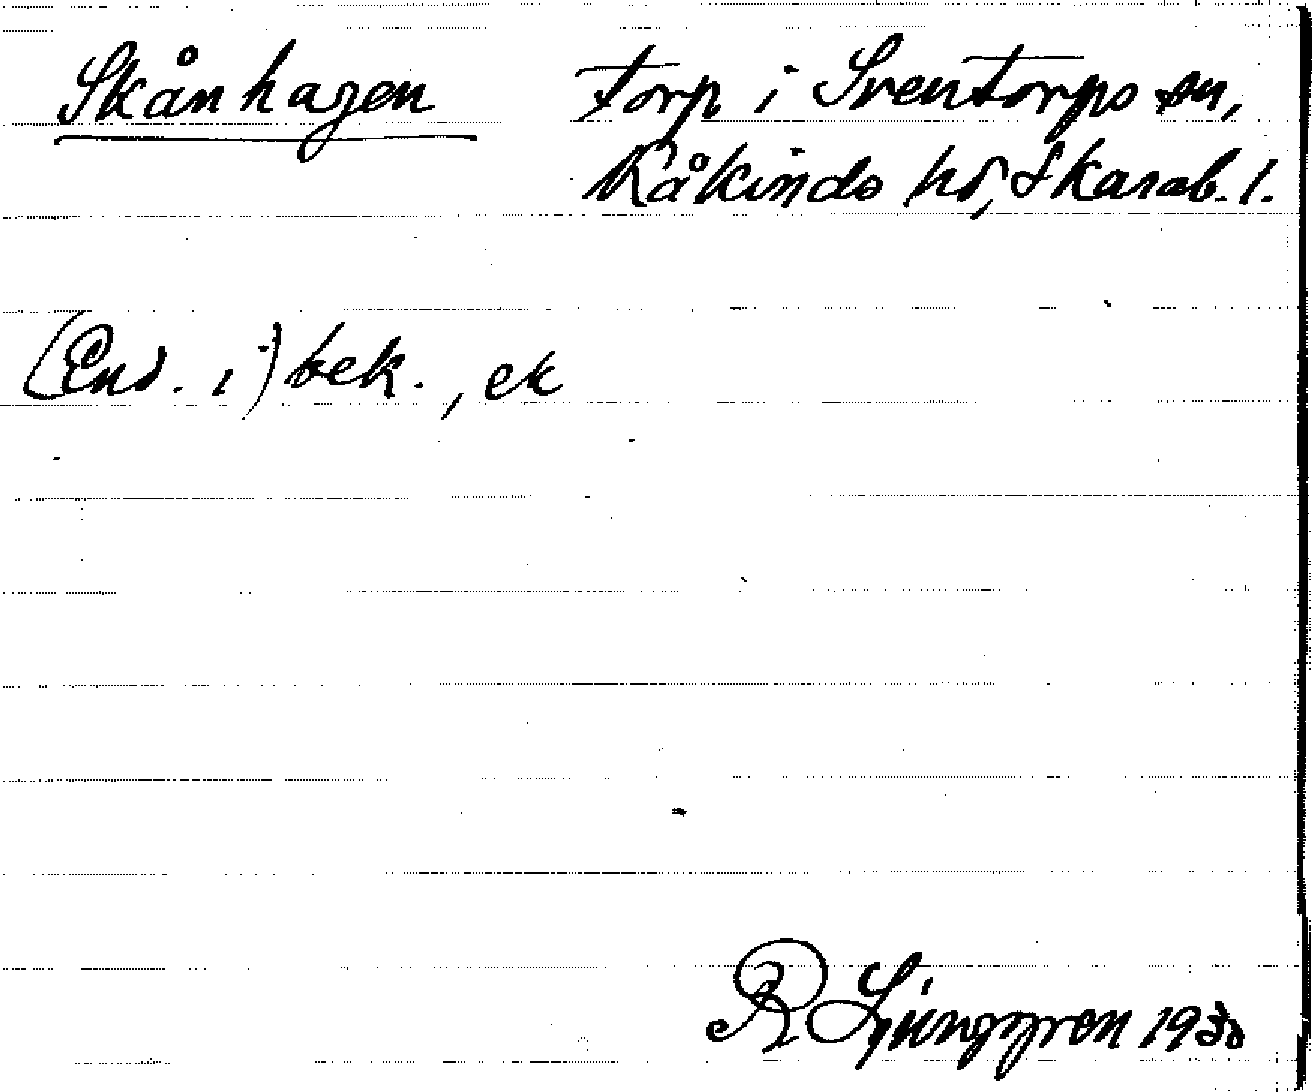 Skånhagen torp i Sventorps sn,
Kåkinds hd, Skarab. l.
(End. i) bek., ek
R Ljunggren 1930